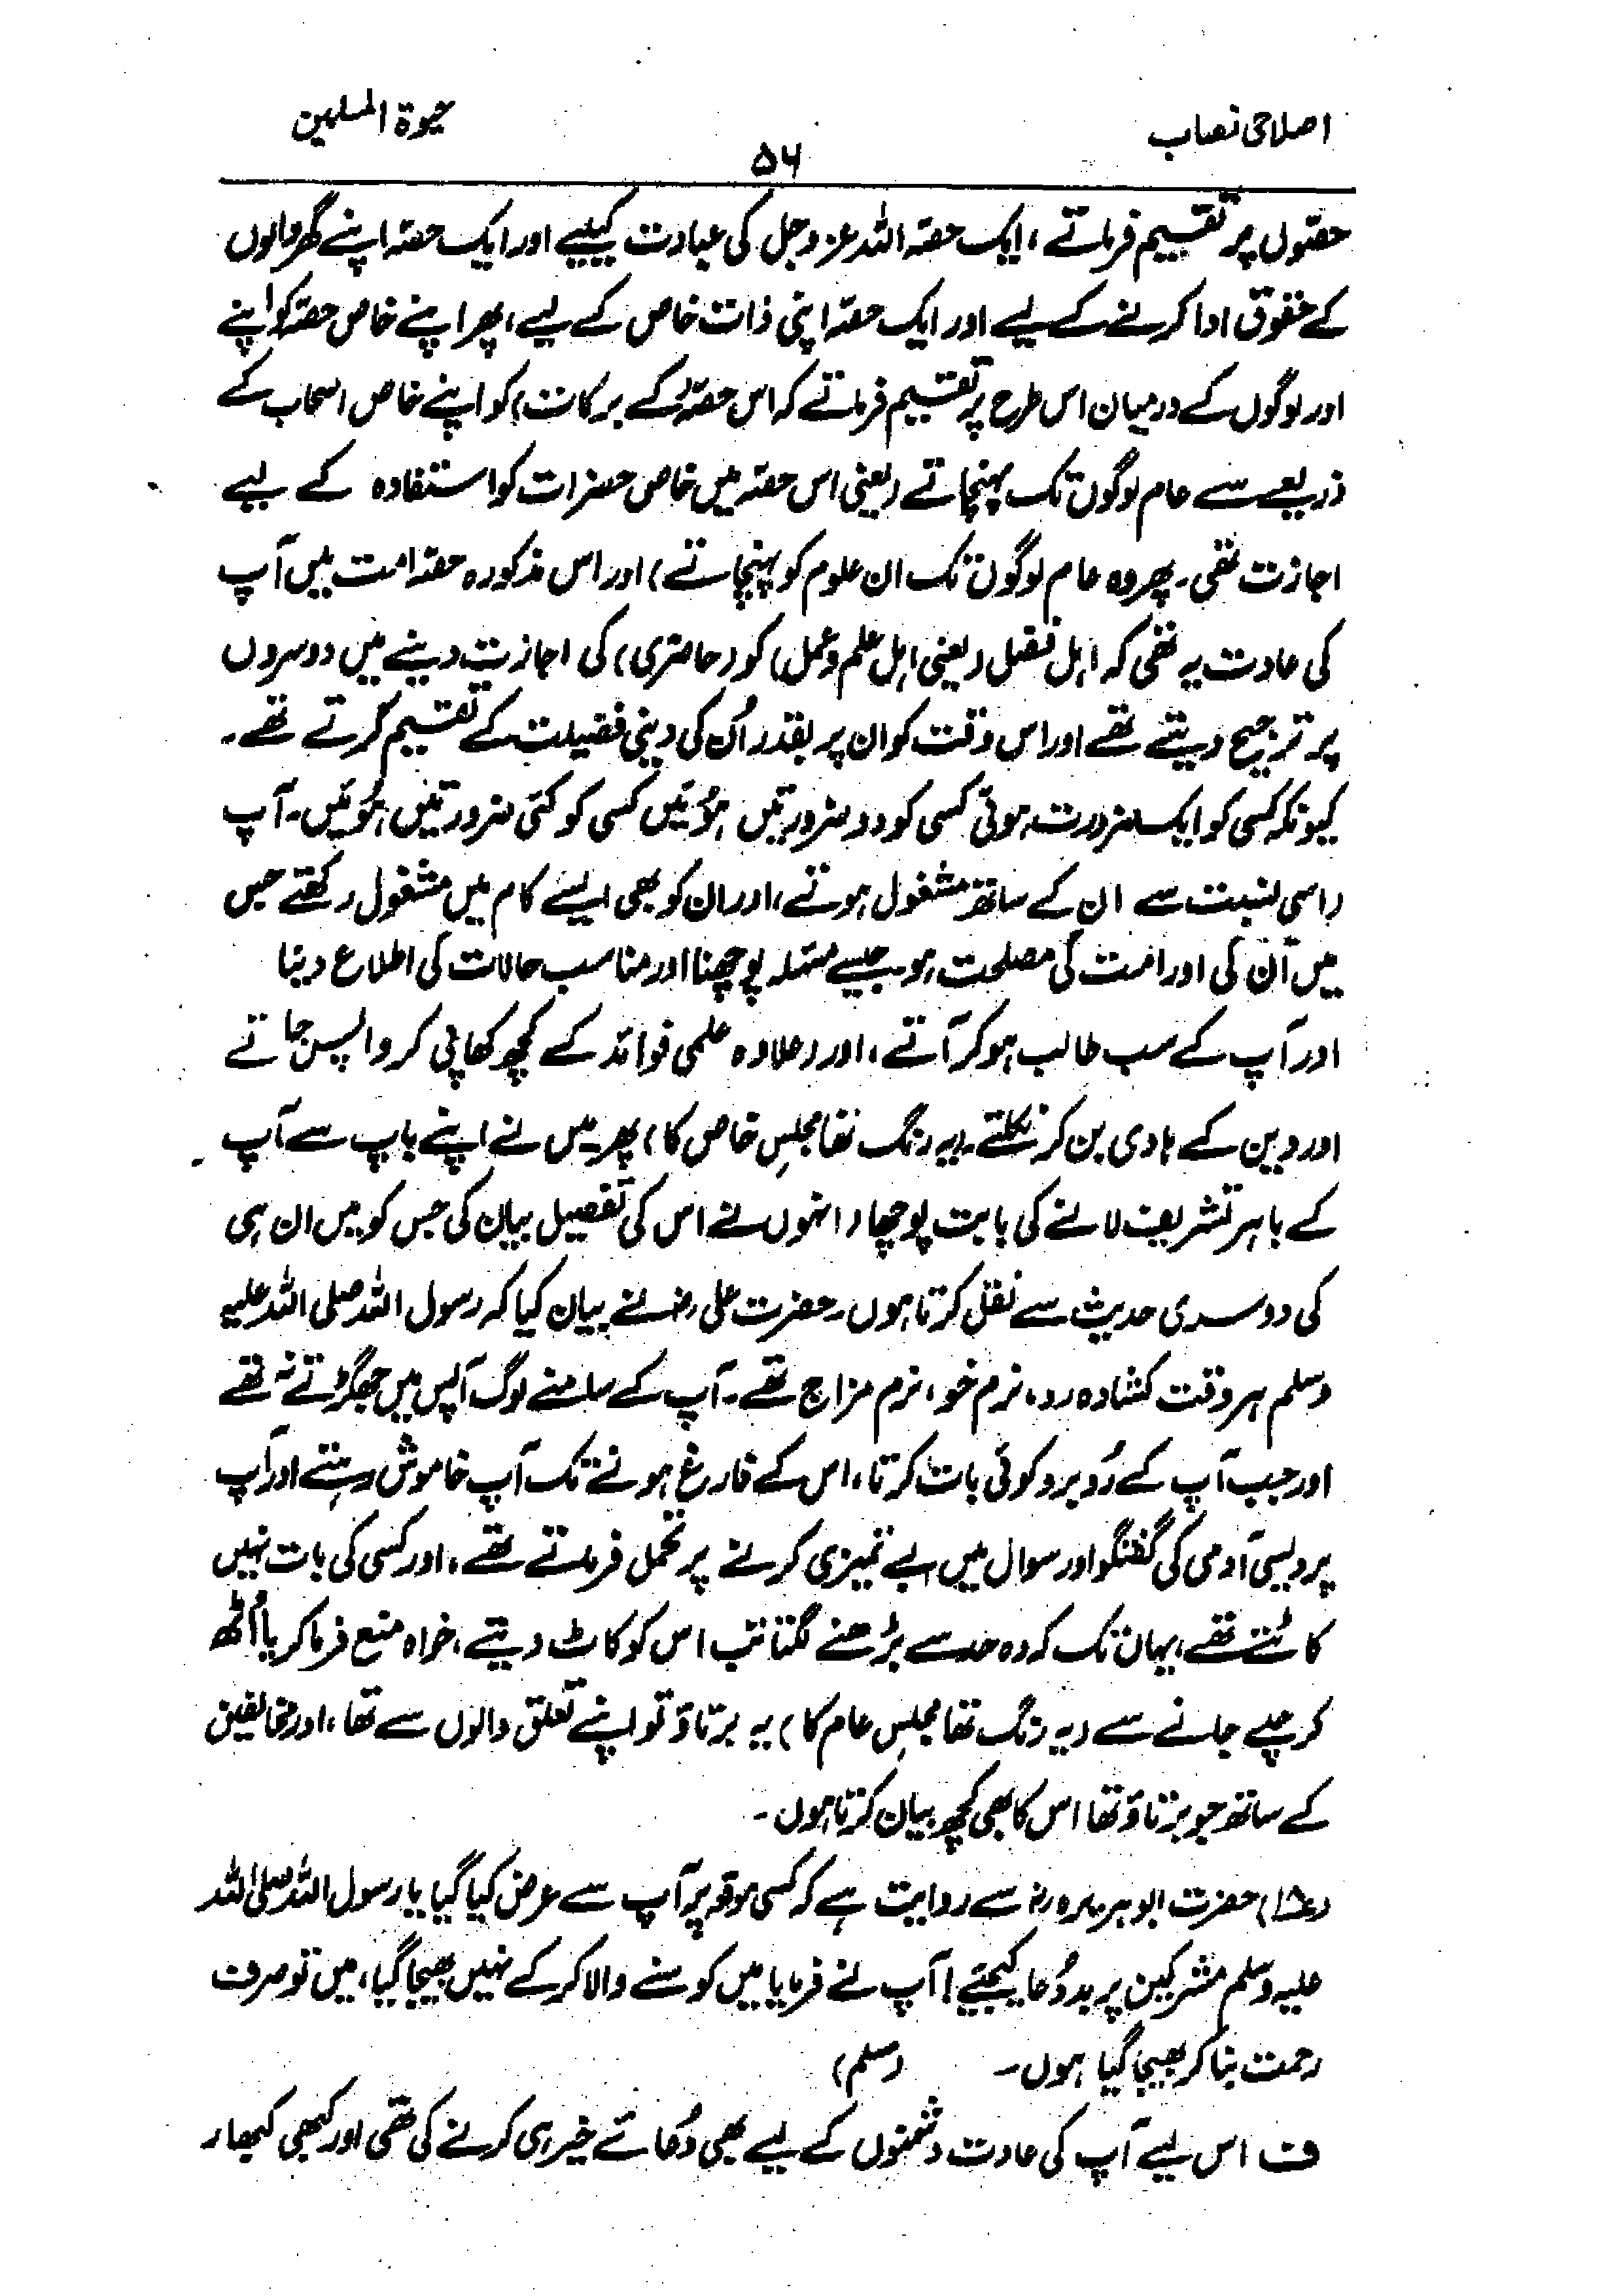 اصلاحی نصاب
۵۶
حیوۃ المسلمین
حصّوں پر تقسیم فرماتے، ایک حصّہ اللہ عزوجل کی عبادت کیلیے اور ایک حصّہ اپنے گھر والوں
کے حقوق ادا کرنے کے لیے اور ایک حصّہ اپنی ذات خاص کے لیے، پھر اپنے خاص حصّہ کو اپنے
اور لوگوں کے درمیان اس طرح پر تقسیم فرماتے کہ اس حصّہ (کے برکات) کو اپنے خاص اصحاب کے
ذریعے سے عام لوگوں تک پہنچاتے (یعنی اس حصّہ میں خاص حضرات کو استفادہ کے لیے
اجازت تھی۔ پھر وہ عام لوگوں تک ان علوم کو پہنچاتے) اور اس مذکورہ حصّہ امت میں آپ
کی عادت یہ تھی کہ اہل فضل (یعنی اہل علم و عمل) کو (حاضری) کی اجازت دینے میں دوسروں
پر ترجیح دیتے تھے اور اس وقت کو ان پر بقدر اُن کی دینی فضیلت کے تقسیم کرتے تھے۔
کیونکہ کسی کو ایک ضرورت ہوتی کسی کو دو ضرورتیں ہوئیں کسی کو کئی ضرورتیں ہوئیں۔ آپ
(اسی نسبت سے ان کے ساتھ مشغول ہوتے، اور ان کو بھی ایسے کام میں مشغول رکھتے جس
میں اُن کی اور امت کی مصلحت ہو۔ جیسے مسئلہ پوچھنا اور مناسب حالات کی اطلاع دینا
اور آپ کے سب طالب ہو کر آتے، اور (علاوہ علمی فوائد کے کچھ کھا پی کر واپس جاتے
اور دین کے ہادی بن کر نکلتے۔ (یہ رنگ تھا مجلسِ خاص کا) پھر میں نے اپنے باپ سے آپ
کے باہر تشریف لانے کی بابت پوچھا (انہوں نے اس کی تفصیل بیان کی جس کو میں ان ہی
کی دوسری حدیث سے نقل کرتا ہوں۔ حضرت علی رض نے بیان کیا کہ رسول اللہ صلی اللہ علیہ
وسلم ہر وقت کشادہ رو، نرم خو، نرم مزاج تھے۔ آپ کے سامنے لوگ آپس میں جھگڑتے نہ تھے
اور جب آپ کے رُوبرو کوئی بات کرتا، اس کے فارغ ہونے تک آپ خاموش رہتے اور آپ
پردیسی آدمی کی گفتگو اور سوال میں بے تمیزی کرنے پر تحمل فرماتے تھے، اور کسی کی بات نہیں
کاٹتے تھے، یہاں تک کہ وہ حد سے بڑھنے لگتا تب اس کو کاٹ دیتے، خواہ منع فرما کر یا اُٹھ
کر چلے جانے سے (یہ رنگ تھا مجلسِ عام کا) یہ برتاؤ تو اپنے تعلق والوں سے تھا، اور مخالفین
کے ساتھ جو برتاؤ تھا اس کا بھی کچھ بیان کرتا ہوں۔
حضرت ابوہریرہ رض سے روایت ہے کہ کسی موقہ پر آپ سے عرض کیا گیا یا رسول اللہ صلی اللہ
علیہ وسلم مشرکین پر بددُعا کیجئے! آپ نے فرمایا میں کوسنے والا کر کے نہیں بھیجا گیا، میں تو صرف
رحمت بنا کر بھیجا گیا ہوں۔ (مسلم)
ف اس لیے آپ کی عادت دشمنوں کے لیے بھی دُعائے خیر ہی کرنے کی تھی اور کبھی کبھار